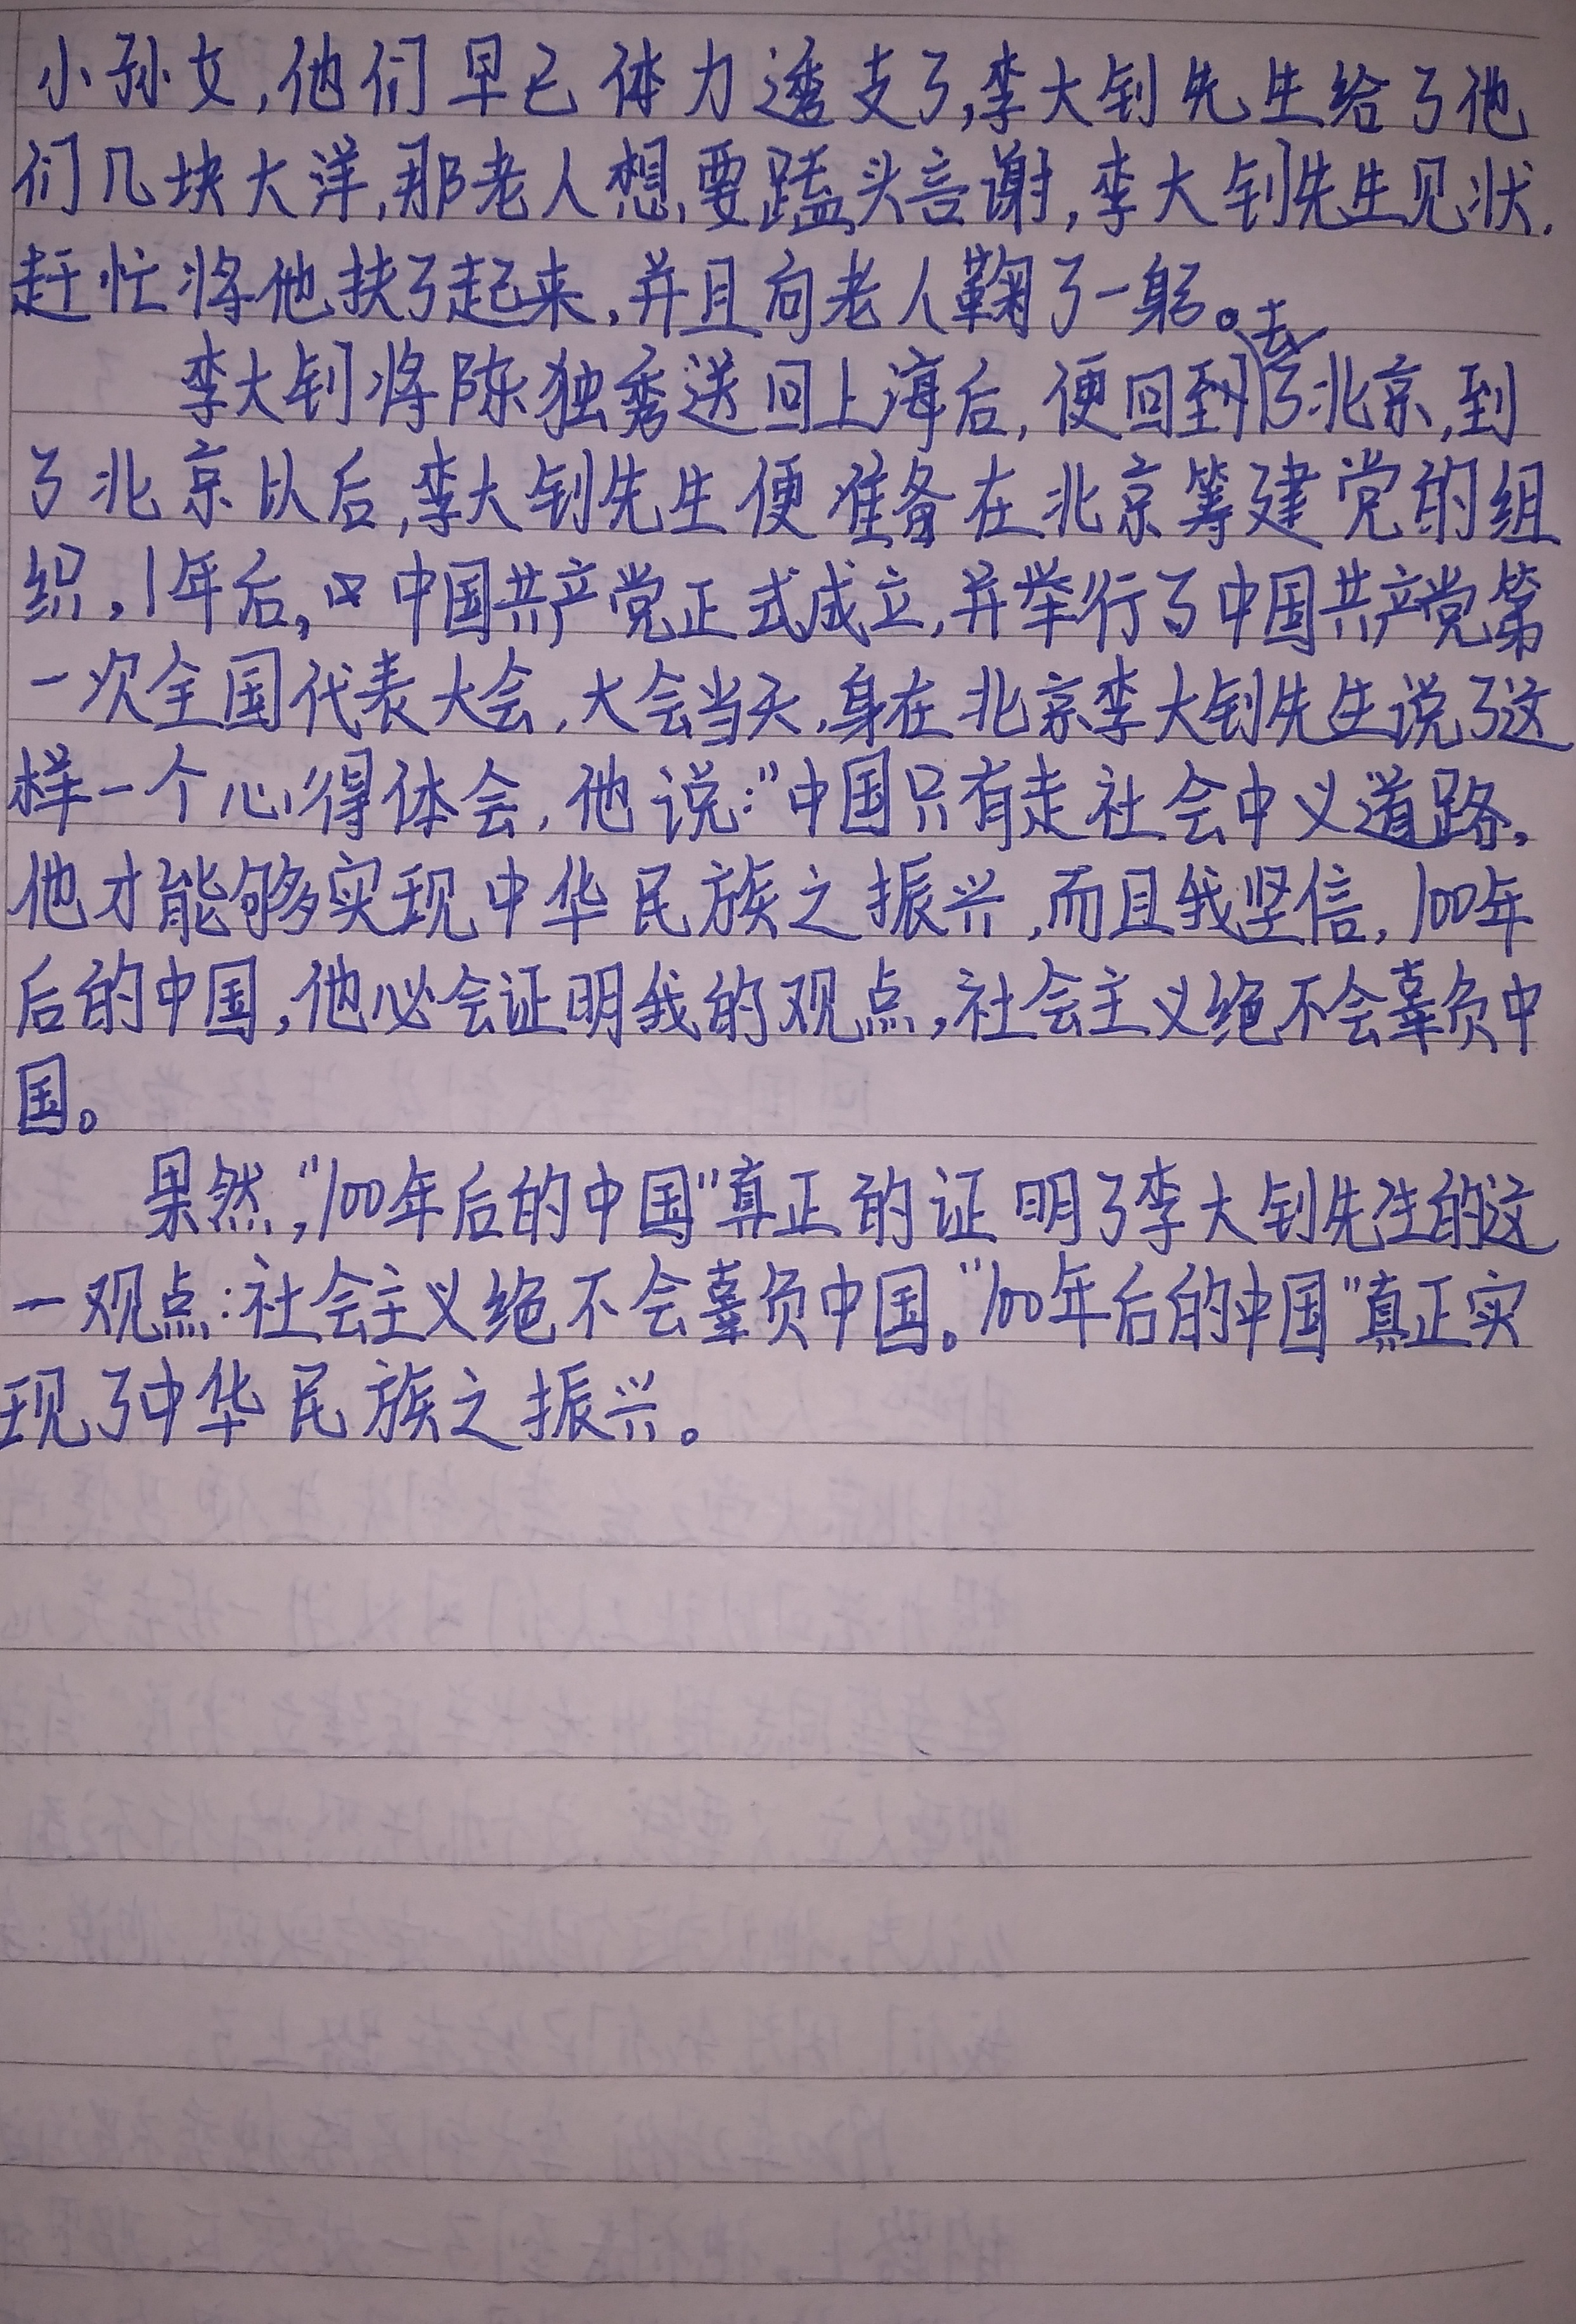 小孙女,他们早已体力透支了,李大钊先生给了他
们几块大洋,那老人想要磕头言谢,李大钊先生见状,
赶忙将他扶了起来,并且向老人鞠了一躬。
李大钊将陈独秀送回上海后,便回到去了北京,到
了北京以后,李大钊先生便准备在北京筹建党的组
织,1年后,中国共产党正式成立,并举行了中国共产党第
一次全国代表大会,大会当天,身在北京李大钊先生说了这
样一个心得体会,他说:"中国只有走社会中义道路,
他才能够实现中华民族之振兴,而且我坚信,100年
后的中国,他必会证明我的观点,社会主义绝不会辜负中
国。
果然,"100年后的中国"真正的证明了李大钊先生的这
一观点:社会主义绝不会辜负中国。"100年后的中国"真正实
现了中华民族之振兴。